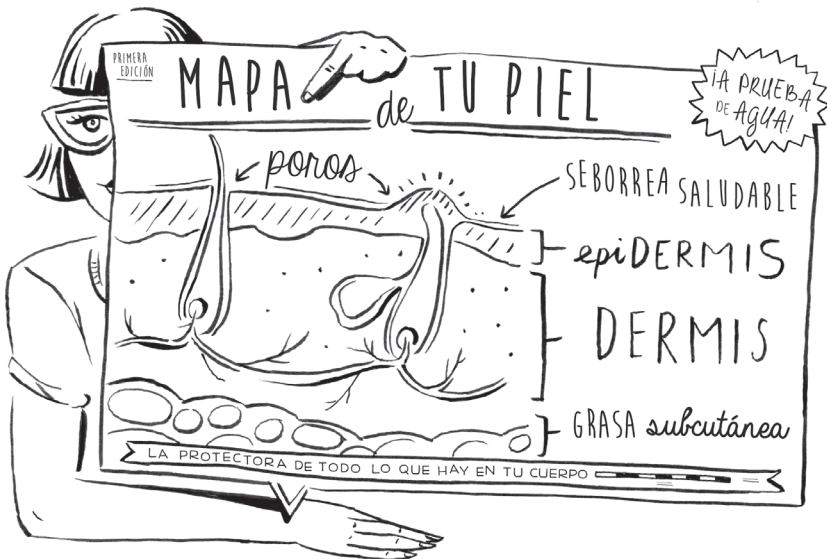 PRIMERA
EDICIÓN
MAPA de TU PIEL
¡A PRUEBA
DE AGUA!
poros
SEBORREA SALUDABLE
epiDERMIS
DERMIS
GRASA subcutánea
LA PROTECTORA DE TODO LO QUE HAY EN TU CUERPO